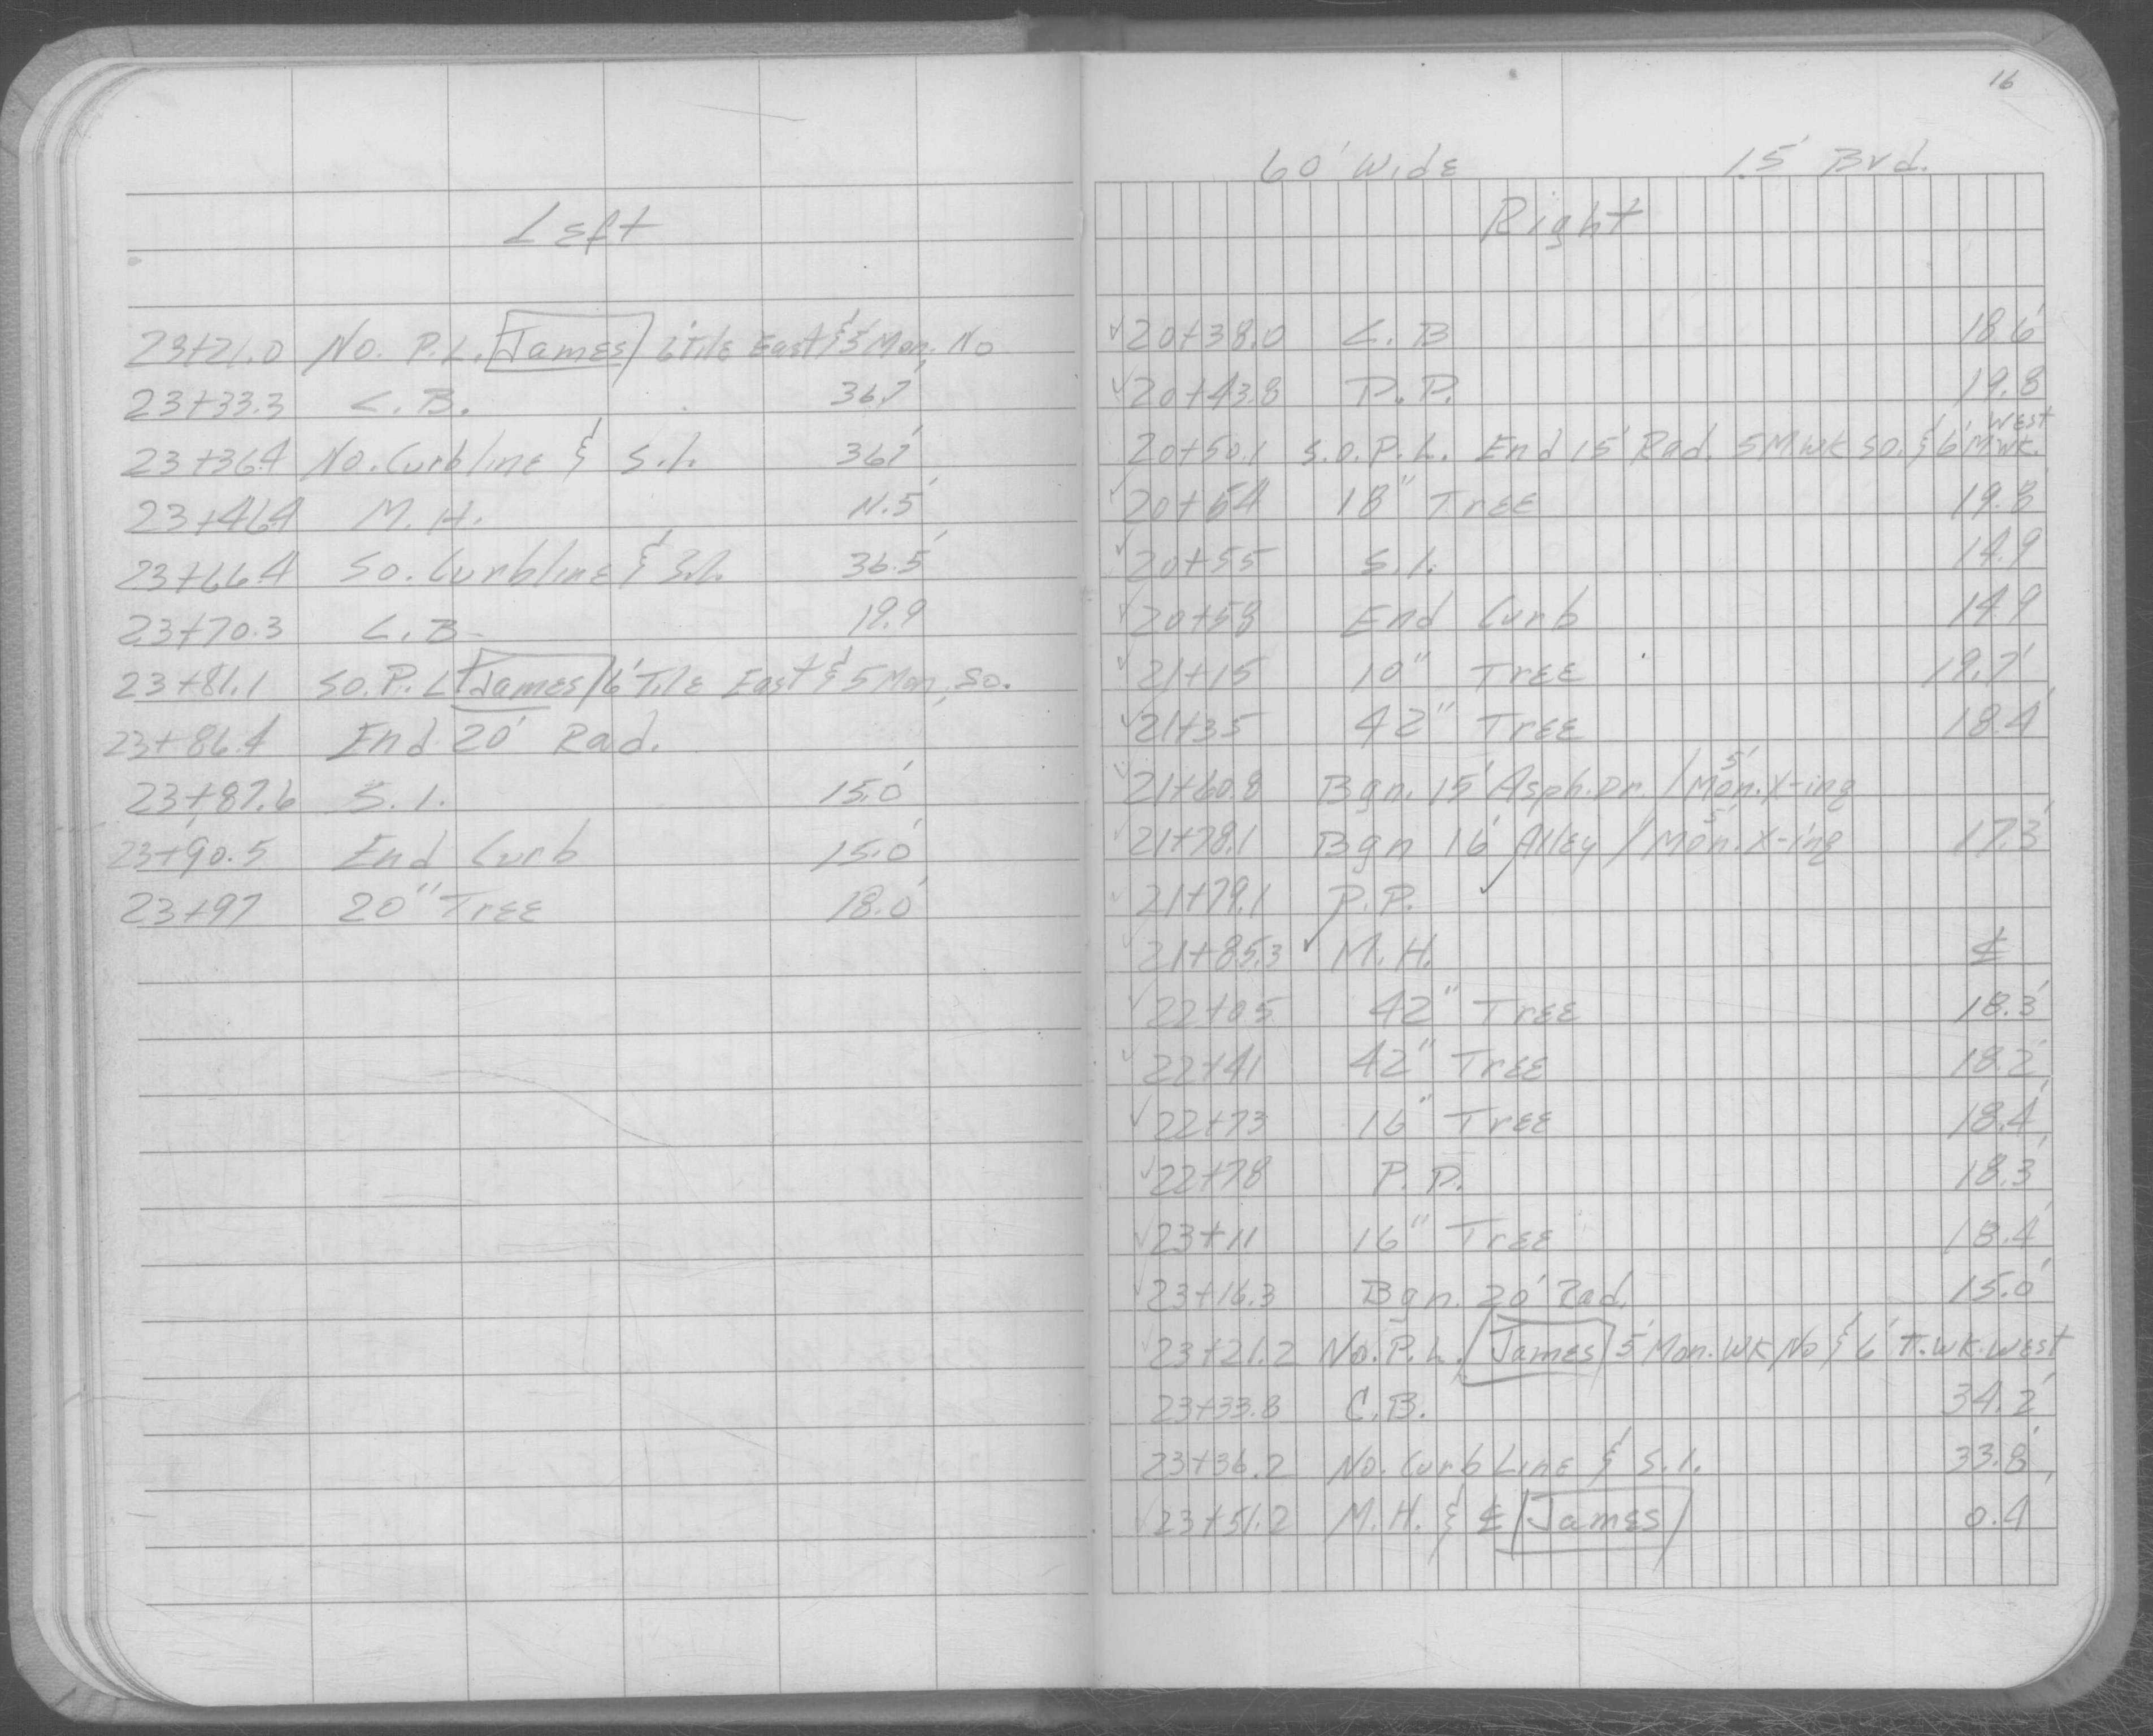 Left
23+21.0 No. P.L. James 6' Tile East & 5' Mon, No
23+33.3 C.B. 36.7'
23+36.4 No. Curbline & S.I. 36.7'
23+46.4 M.H. N.5'
23+66.4 So. Curbline & S.I. 36.5'
23+70.3 C.B. 19.9'
23+81.1 So. P.L. James 6' Tile East & 5 Mon, So.
23+86.4 End 20' Rad.
23+87.6 S.I. 15.0'
23+90.5 End Curb 15.0'
23+97 20" Tree 18.0'
16
60' Wide 15' Bvd.
Right
✓ 20+38.0 C.B 18.6'
✓ 20+43.8 P.P. 19.8
20+50.1 S.O.P.L. End 15' Rad. 5 M.WK SO. & 6' M.WK. West
✓ 20+54 18" Tree 19.8'
✓ 20+55 S.I. 14.9
✓ 20+58 End Curb 14.9
✓ 21+15 10" Tree 19.7'
✓ 21+35 42" Tree 18.4'
✓ 21+60.8 Bgn. 15' Asph. Dr. / 5' Mon. X-ing
✓ 21+78.1 Bgn 16' Alley / 5' Mon. X-ing 17.3'
✓ 21+79.1 P.P. ✓
✓ 21+85.3 ✓ M.H. ℄
✓ 22+05 42" Tree 18.3'
✓ 22+41 42" Tree 18.2'
✓ 22+73 16" Tree 18.4'
✓ 22+78 P.P. 18.3'
✓ 23+11 16" Tree 18.4'
✓ 23+16.3 Bgn. 20' Rad. 15.0'
23+21.2 No. P.L. James 5' Mon. WK No & 6' T.WK. West
23+33.8 C.B. 34.2'
23+36.2 No. Curb Line & S.I. 33.8'
✓ 23+51.2 M.H. & ℄ James 0.4'